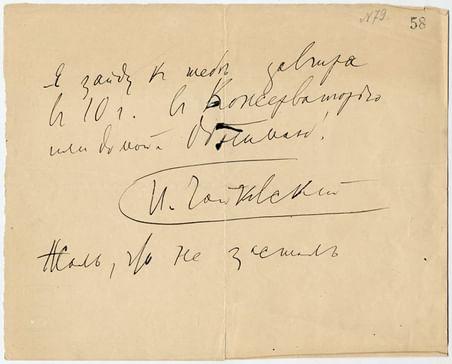 №79. 58
Я зайду к тебѣ завтра
в 10 ч. в Консерваторію
или домой. Обнимаю!
П. Чайковский
Жаль, что не засталъ